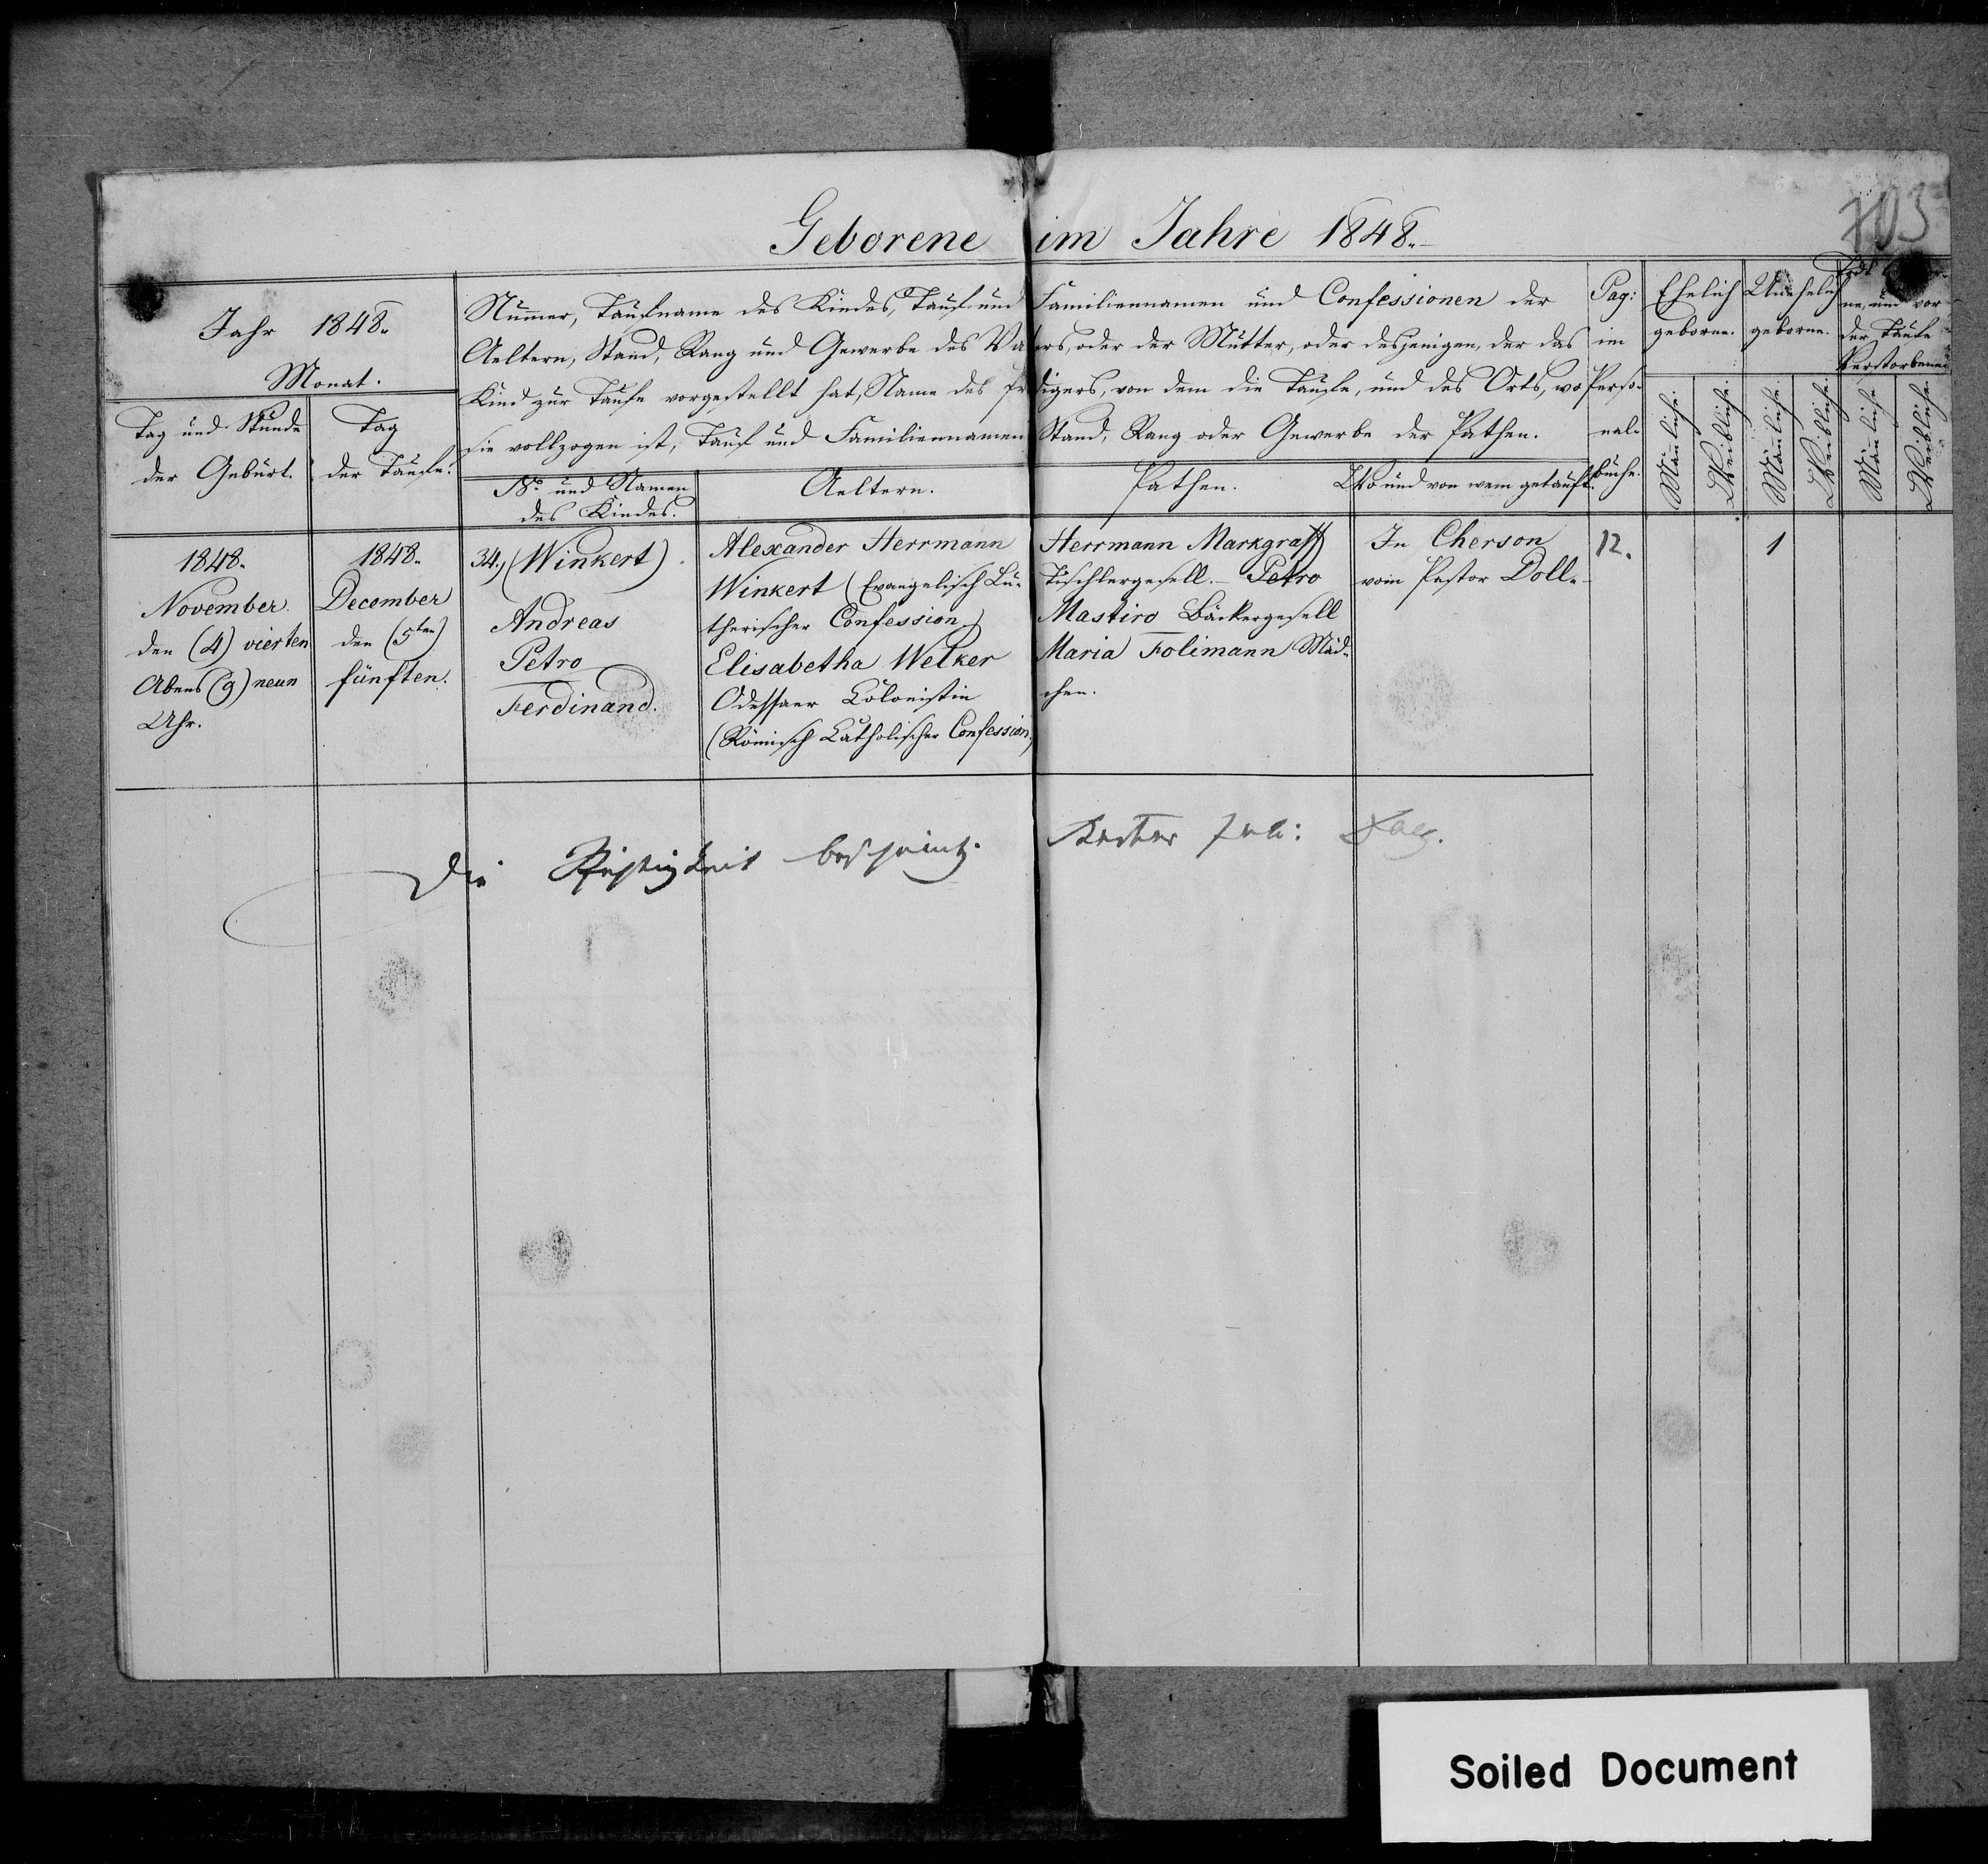 Geborene im Jahre 1848.
703
Jahr 1848.
Monat.
Tag und Stunde
der Geburt.
Tag
der Taufe.
Nummer, Taufname des Kindes, Tauf und Familiennamen und Confessionen der
Aeltern, Stand, Rang und Gewerbe des Vaters, oder der Mutter, oder desjenigen, der das
Kind zur Taufe vorgestellt hat, Name des Predigers, von dem die Taufe, und des Orts, wo
sie vollzogen ist, Tauf und Familiennamen Stand, Rang oder Gewerbe der Pathen.
No und Namen
des Kindes.
Aeltern.
Pathen.
Wo und von wem getauft.
Pag:
im
Perso-
nal-
buche.
Ehelich
geborne.
Unehelich
geborne.
ne, und vor
der Taufe
Verstorbenen
Mänliche.
Weibliche.
Mänliche.
Weibliche.
Mänliche.
Weibliche.
1848.
November.
den (4) vierten
Abens (9) neun
Uhr.
1848.
December
den (5ten)
fünften.
34., (Winkert)
Andreas
Petro
Ferdinand.
Alexander Herrmann
Winkert (Evangelisch Lu-
therischer Confession)
Elisabetha Welker
Odessaer Colonistin
(Römisch Catholischer Confession)
Herrmann Markgraff
Tischlergesell. - Petro
Mastiro Bäckergesell
Maria Folimann Mäd-
chen.
In Cherson
vom Pastor Doll.
12.
1
Die Richtigkeit bescheinigt.
Soiled Document